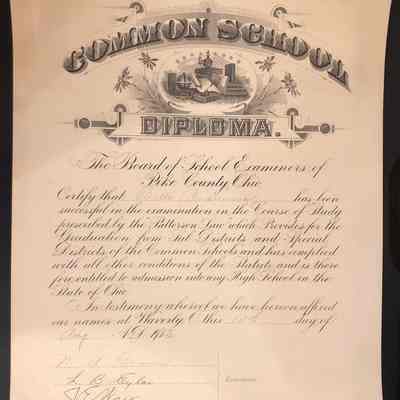 COMMON SCHOOL
DIPLOMA.
The Board of School Examiners of
Pike County Ohio
Certify that has been
successful in the examination in the Course of Study
prescribed by the Patterson Law which Provides for the
Graduation from Sub Districts and Special
Districts of the Common Schools and has complied
with all other conditions of the Statute and is there
fore entitled to admission into any High School in the
State of Ohio.
In testimony whereof we have hereon affixed
our names at Waverly, O this day of
A.D. 19
L. B.
Examiners.